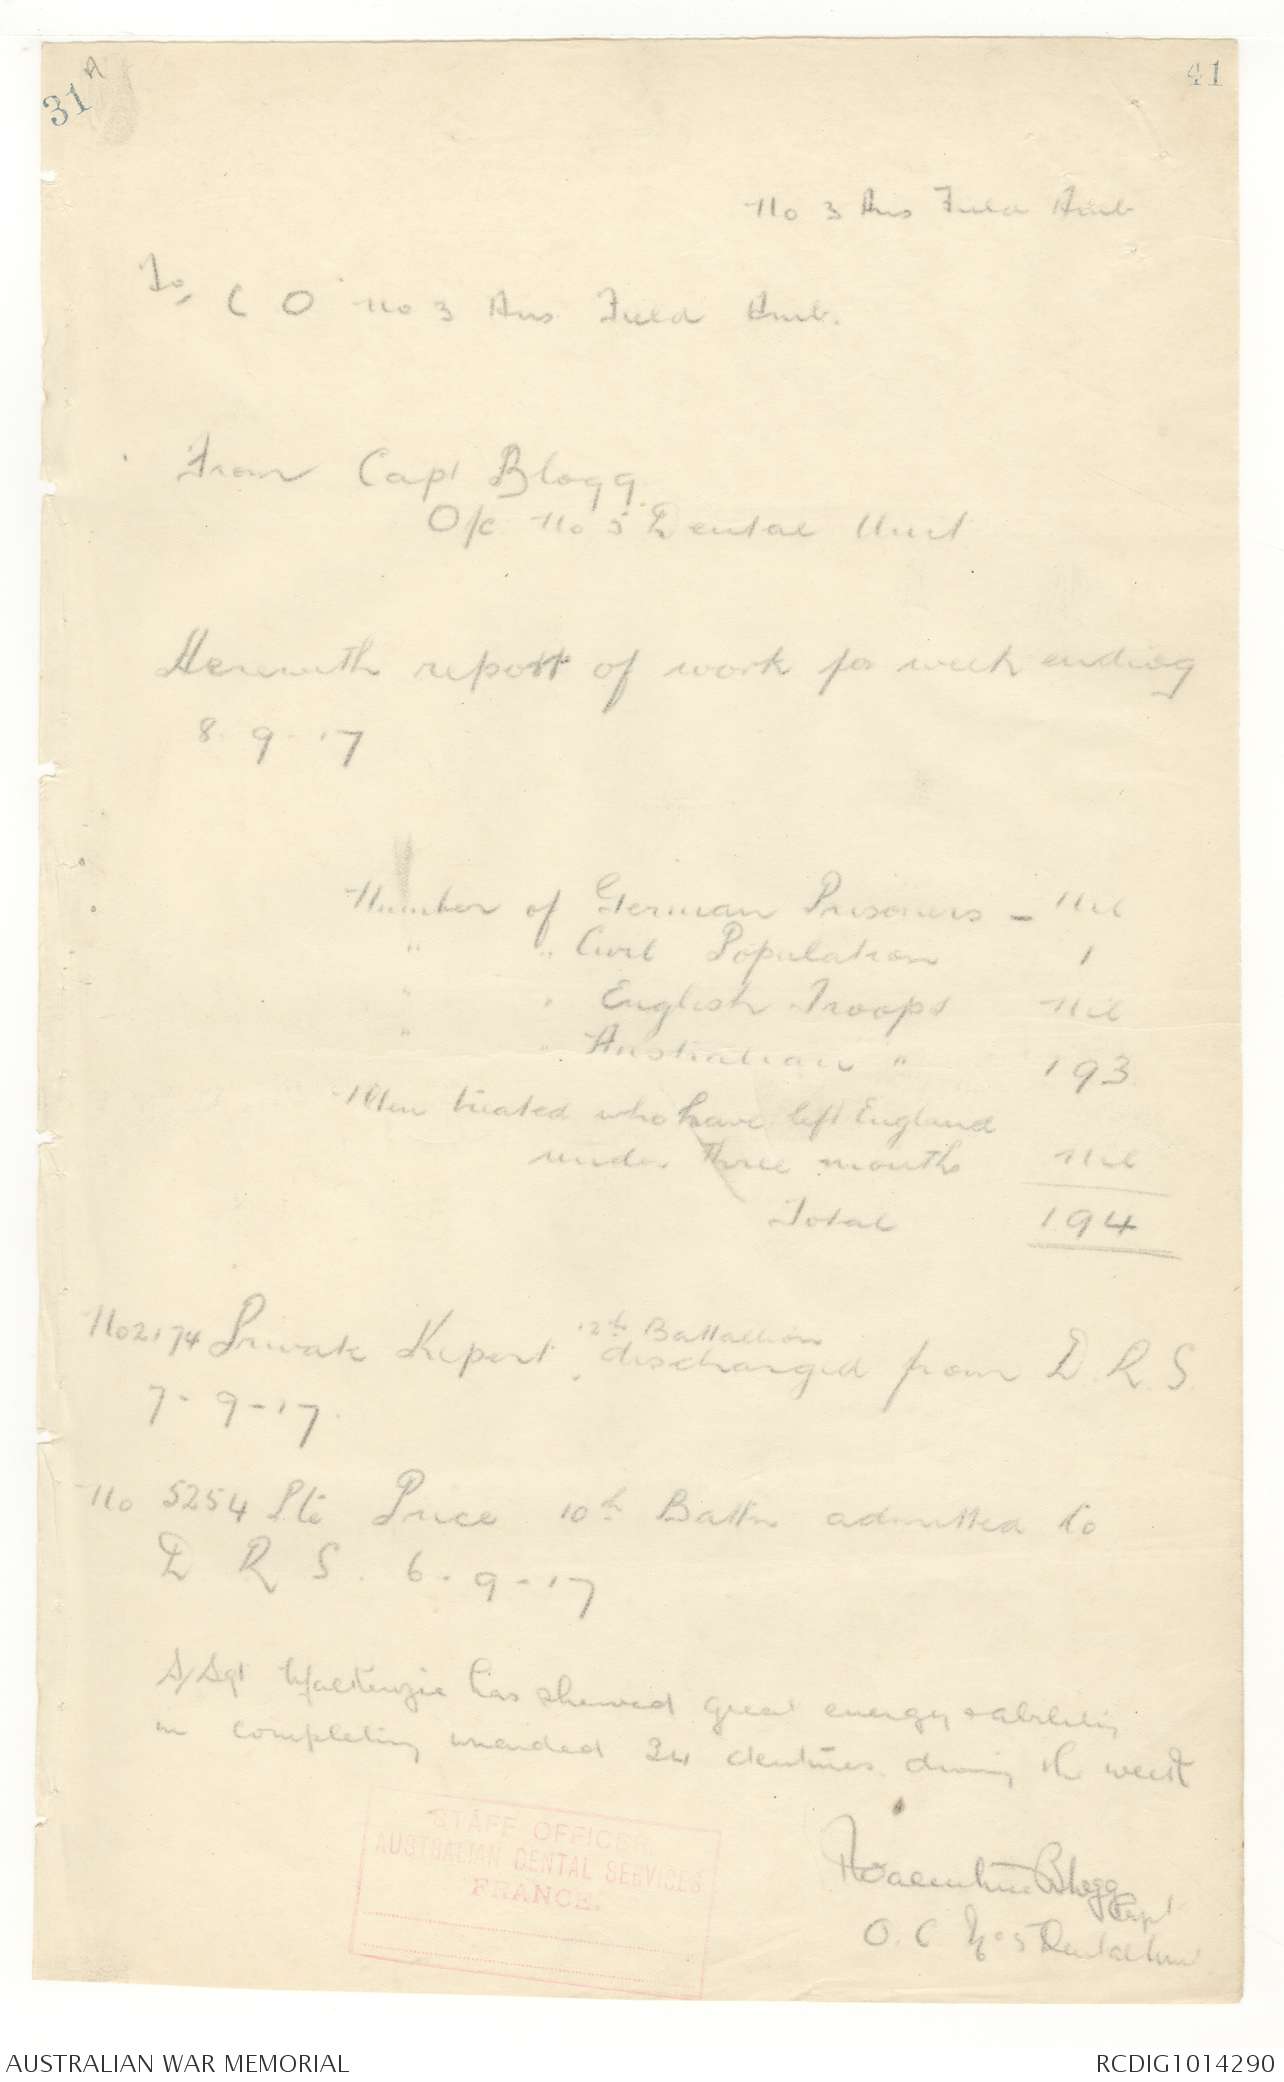 31A
41
No 3 Aus Field Amb
To, C O No 3 Aus Field Amb.
From Capt Blogg
O/c No 5 Dental Unit
Herewith report of work for week ending
8.9.17
Number of German Prisoners - Nil
" " Civil Population 1
" " English Troops Nil
" " Australian " 193
Men treated who have left England
under three months Nil
Total 194
12th Battalion
No 2174 Private Kepert discharged from D.R.S.
7-9-17.
No 5254 Pte Price 10th Battn admitted to
D R S. 6-9-17
S/Sgt Mackenzie has shewed great energy & ability
in completing unaided 34 dentures during the week
STAFF OFFICER,
AUSTRALIAN DENTAL SERVICES
FRANCE.
Blogg Capt
O.C No 5 Dental Unit
AUSTRALIAN WAR MEMORIAL
RCDIG1014290